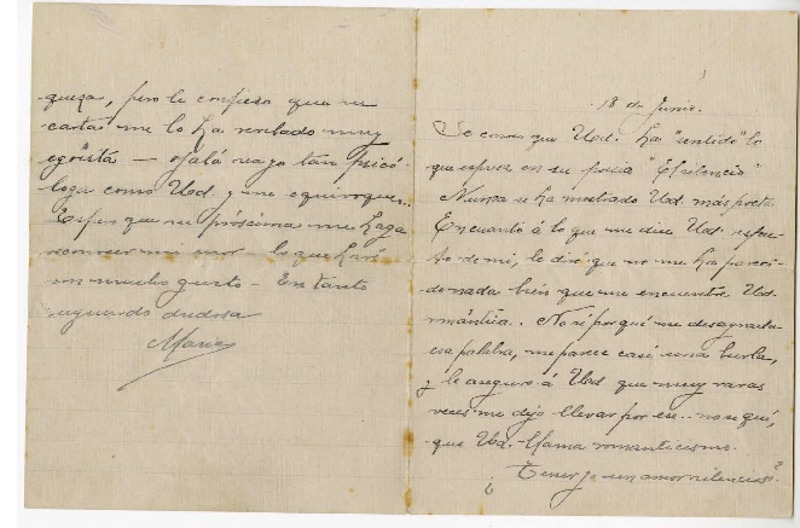 queza, pero le confieso que su
carta me lo ha revelado muy
egoista — ojalá sea yo tan psicó-
loga como Ud. y me equivoque..
Espero que su próxima me haga
reconocer mi error — lo que haré
con mucho gusto — En tanto
aguardo dudosa
Maria
18 de Junio.
Se conoce que Ud. ha "sentido" lo
que expresa en su poesia "El silencio"
Nunca se ha mostrado Ud. más poeta.
En cuanto á lo que me dice Ud. respec-
to de mi, le diré que no me ha pareci-
do nada bien que me encuentre Ud.
romántica. No sé por qué me desagrada
esa palabra, me parece casi una burla,
y le aseguro á Ud que muy raras
veces me dejo llevar por ese.. no se qué,
que Ud. llama romanticismo.
¿Tener yo un amor silencioso?